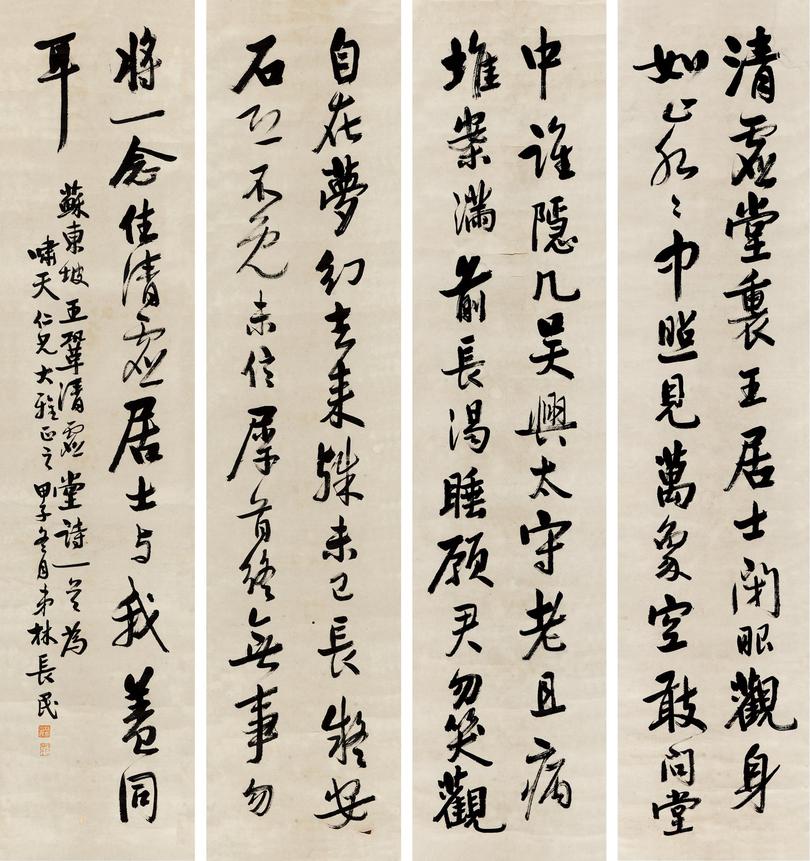 清虛堂裏王居士閉眼觀身
如止水〻中照見萬象空敢問堂
中誰隱几吳興太守老且病
堆案滿前長渴睡願君勿笑觀
自在夢幻去來殊未已長疑安
石恐不免未信犀首終無事勿
將一念住清虛居士与我蓋同
耳
蘇東坡王鞏清虛堂詩一首為
嘯天仁兄大雅正之 甲子冬月弟林長民